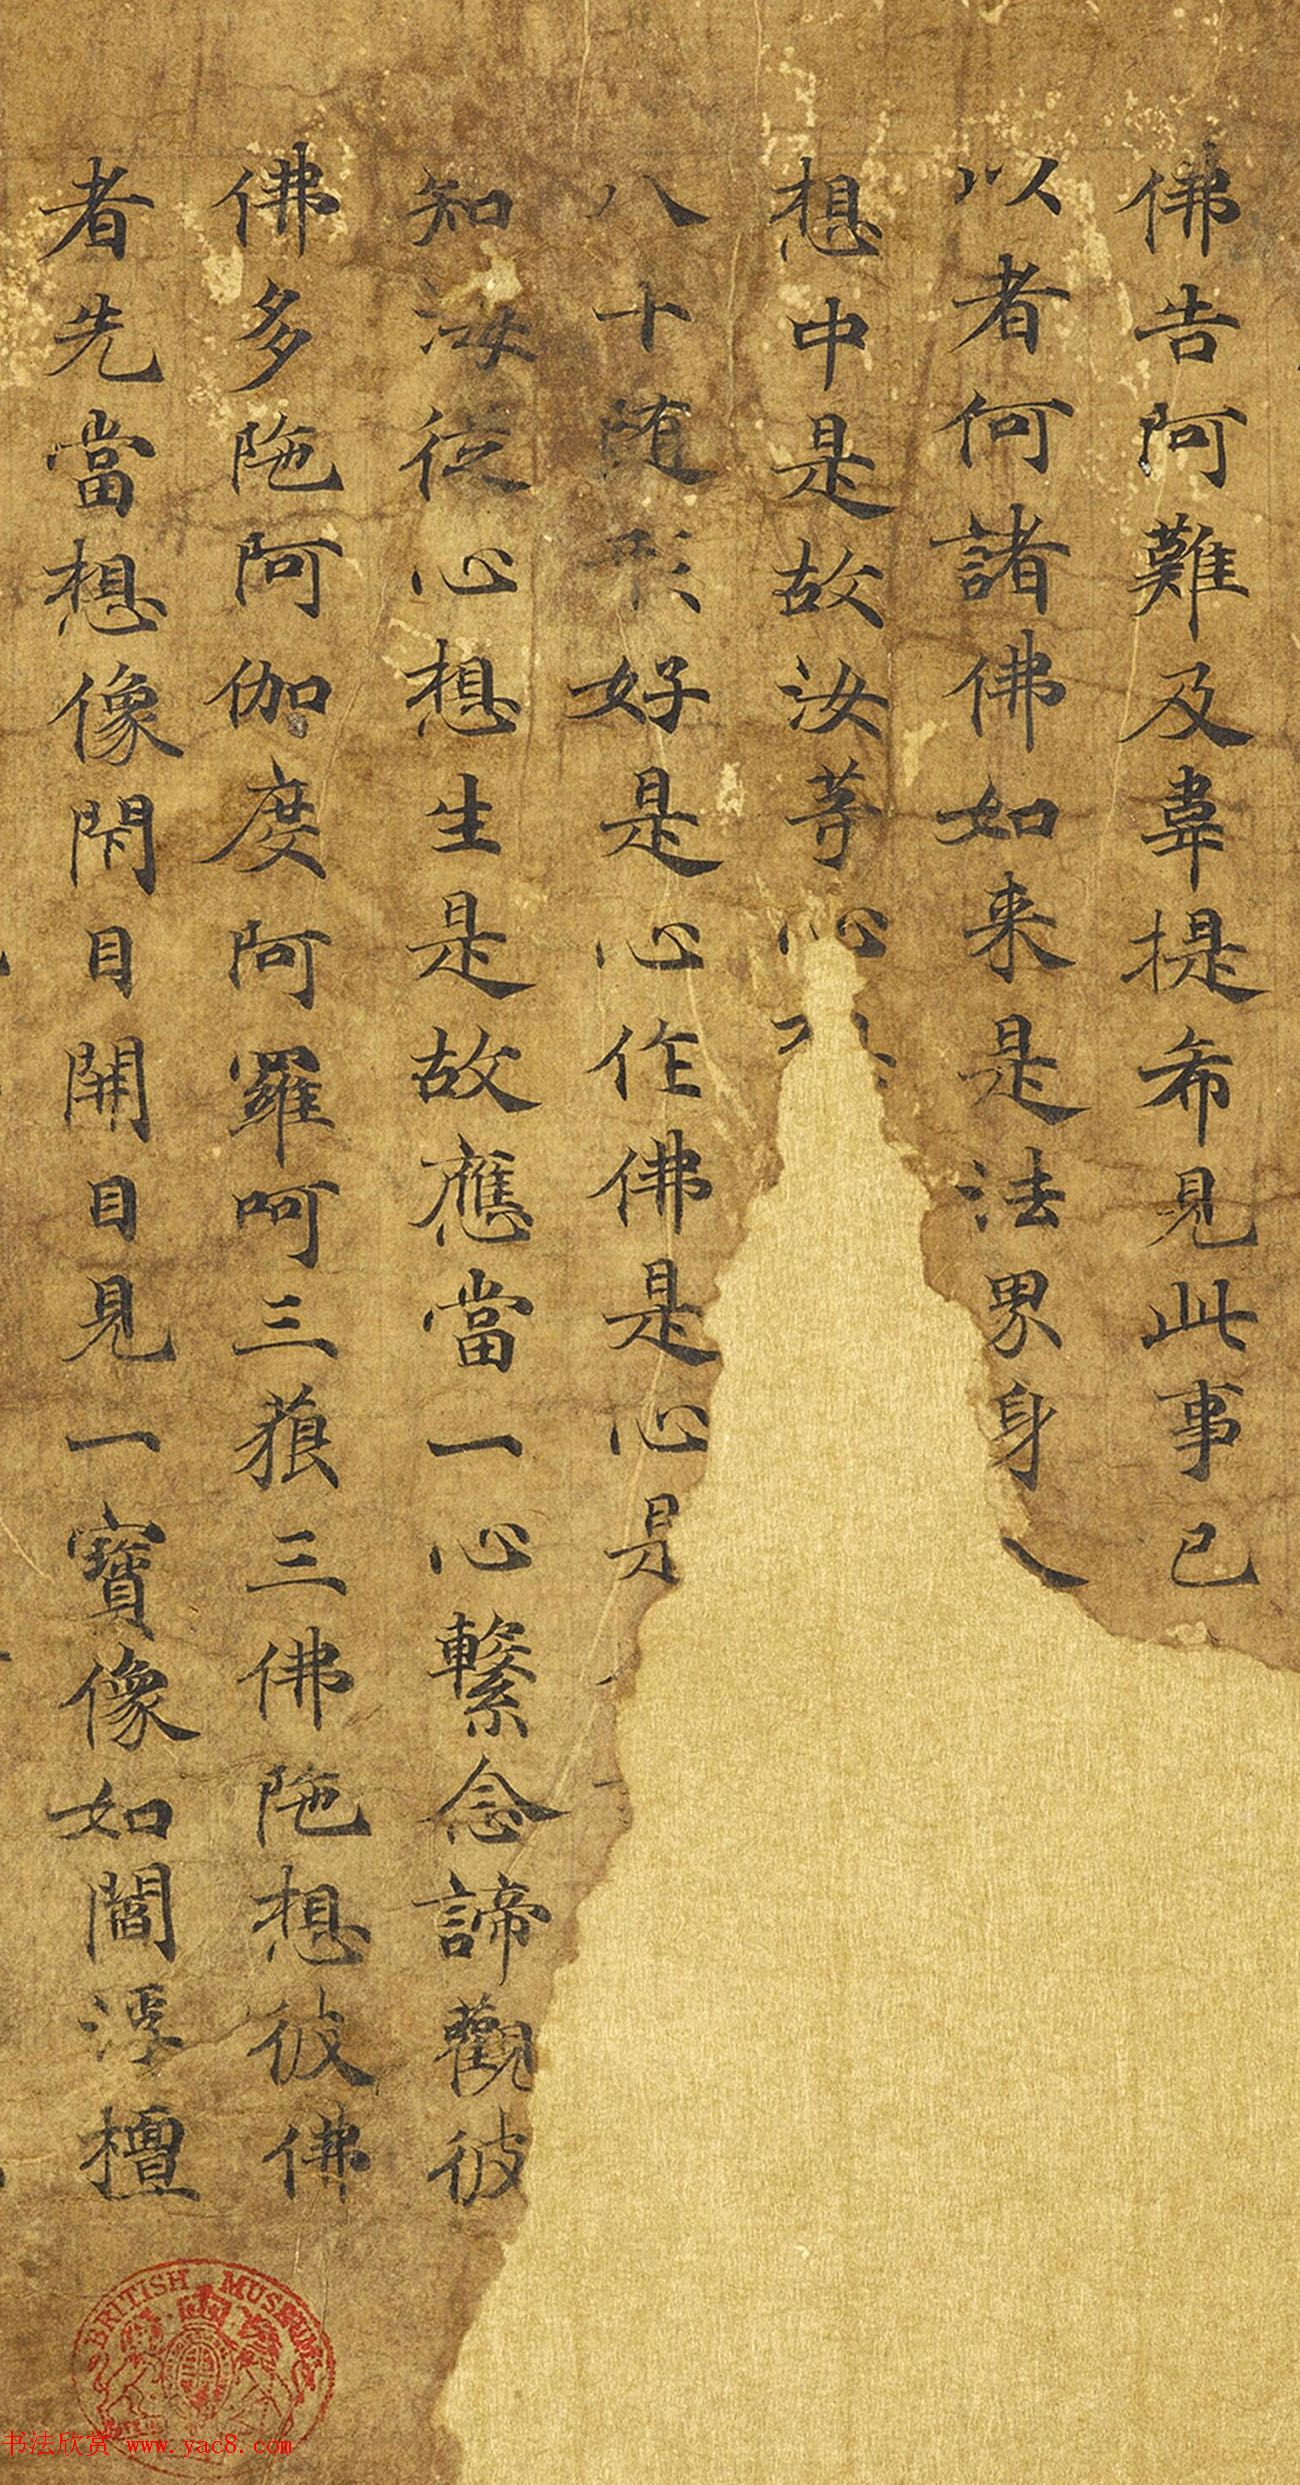 佛告阿難及韋提希見此事已
以者何諸佛如来是法界身
想中是故汝等心
八十随形好是心作佛是心是
知海從心想生是故應當一心繫念諦觀彼
佛多陁阿伽度阿羅呵三藐三佛陁想彼佛
者先當想像閇目開目見一寶像如閻浮檀
BRITISH MUSEUM
书法欣赏 www.yac8.com